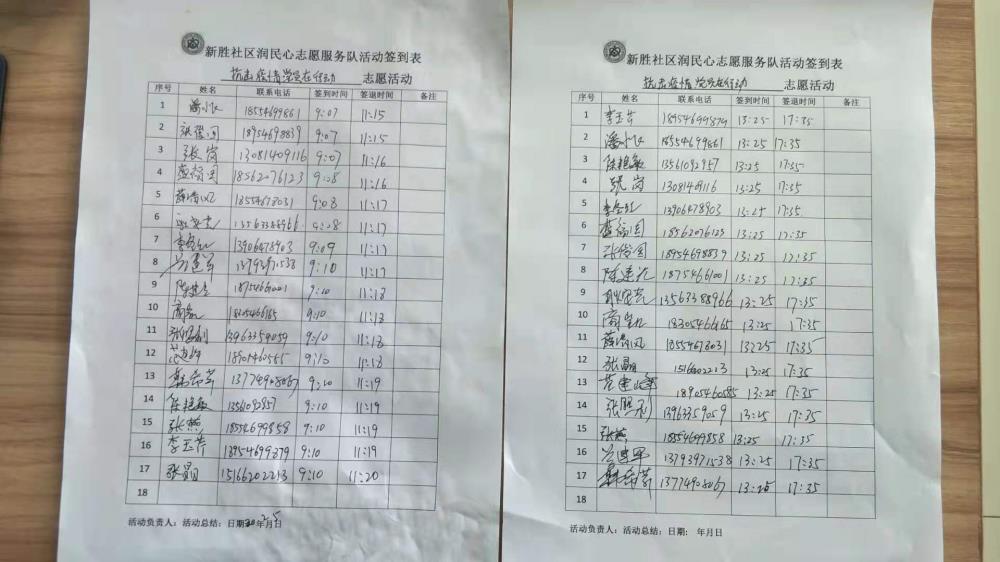 新胜社区润民心志愿服务队活动签到表
抗击疫情党员在行动 志愿活动
序号 姓名 联系电话 签到时间 签退时间 备注
1 潘小飞 18554699861 9:07 11:15
2 张俊国 18954698839 9:07 11:15
3 张岗 13081409116 9:07 11:16
4 18562076123 9:08 11:16
5 薛清风 18554678031 9:08 11:17
6 13563388966 9:08 11:17
7 13906478903 9:09 11:17
8 13793971538 9:10 11:17
9 18754661001 9:10 11:18
10 18305466165 9:10 11:18
11 13963359059 9:10 11:18
12 18905460585 9:10 11:18
13 13774908067 9:10 11:19
14 陈艳敏 9:10 11:19
15 张燕 18554699858 9:10 11:19
16 李玉芹 18954699879 9:10 11:19
17 张勗 15166202213 9:10 11:20
18
活动负责人: 活动总结: 日期: 年2月5日
新胜社区润民心志愿服务队活动签到表
抗击疫情党员在行动 志愿活动
序号 姓名 联系电话 签到时间 签退时间 备注
1 李玉芹 18954699879 13:25 17:35
2 潘小飞 18554699861 13:25 17:35
3 陈艳敏 13561092957 13:25 17:35
4 张岗 1308149116 13:25 17:35
5 13906478903 13:25 17:35
6 18562076123 13:25 17:35
7 张俊国 18954698839 13:25 17:35
8 陈建花 18754661001 13:25 17:35
9 13563388966 13:25 17:35
10 18305466165 13:25 17:35
11 薛清风 18554678031 13:25 17:35
12 张勗 15166202213 13:25 17:35
13 范建峰 18905460585 13:25 17:35
14 张胜利 13963359059 13:25 17:35
15 张燕 18554699858 13:25 17:35
16 13793971538 13:25 17:35
17 13774908067 13:25 17:35
18
活动负责人: 活动总结: 日期: 年月日